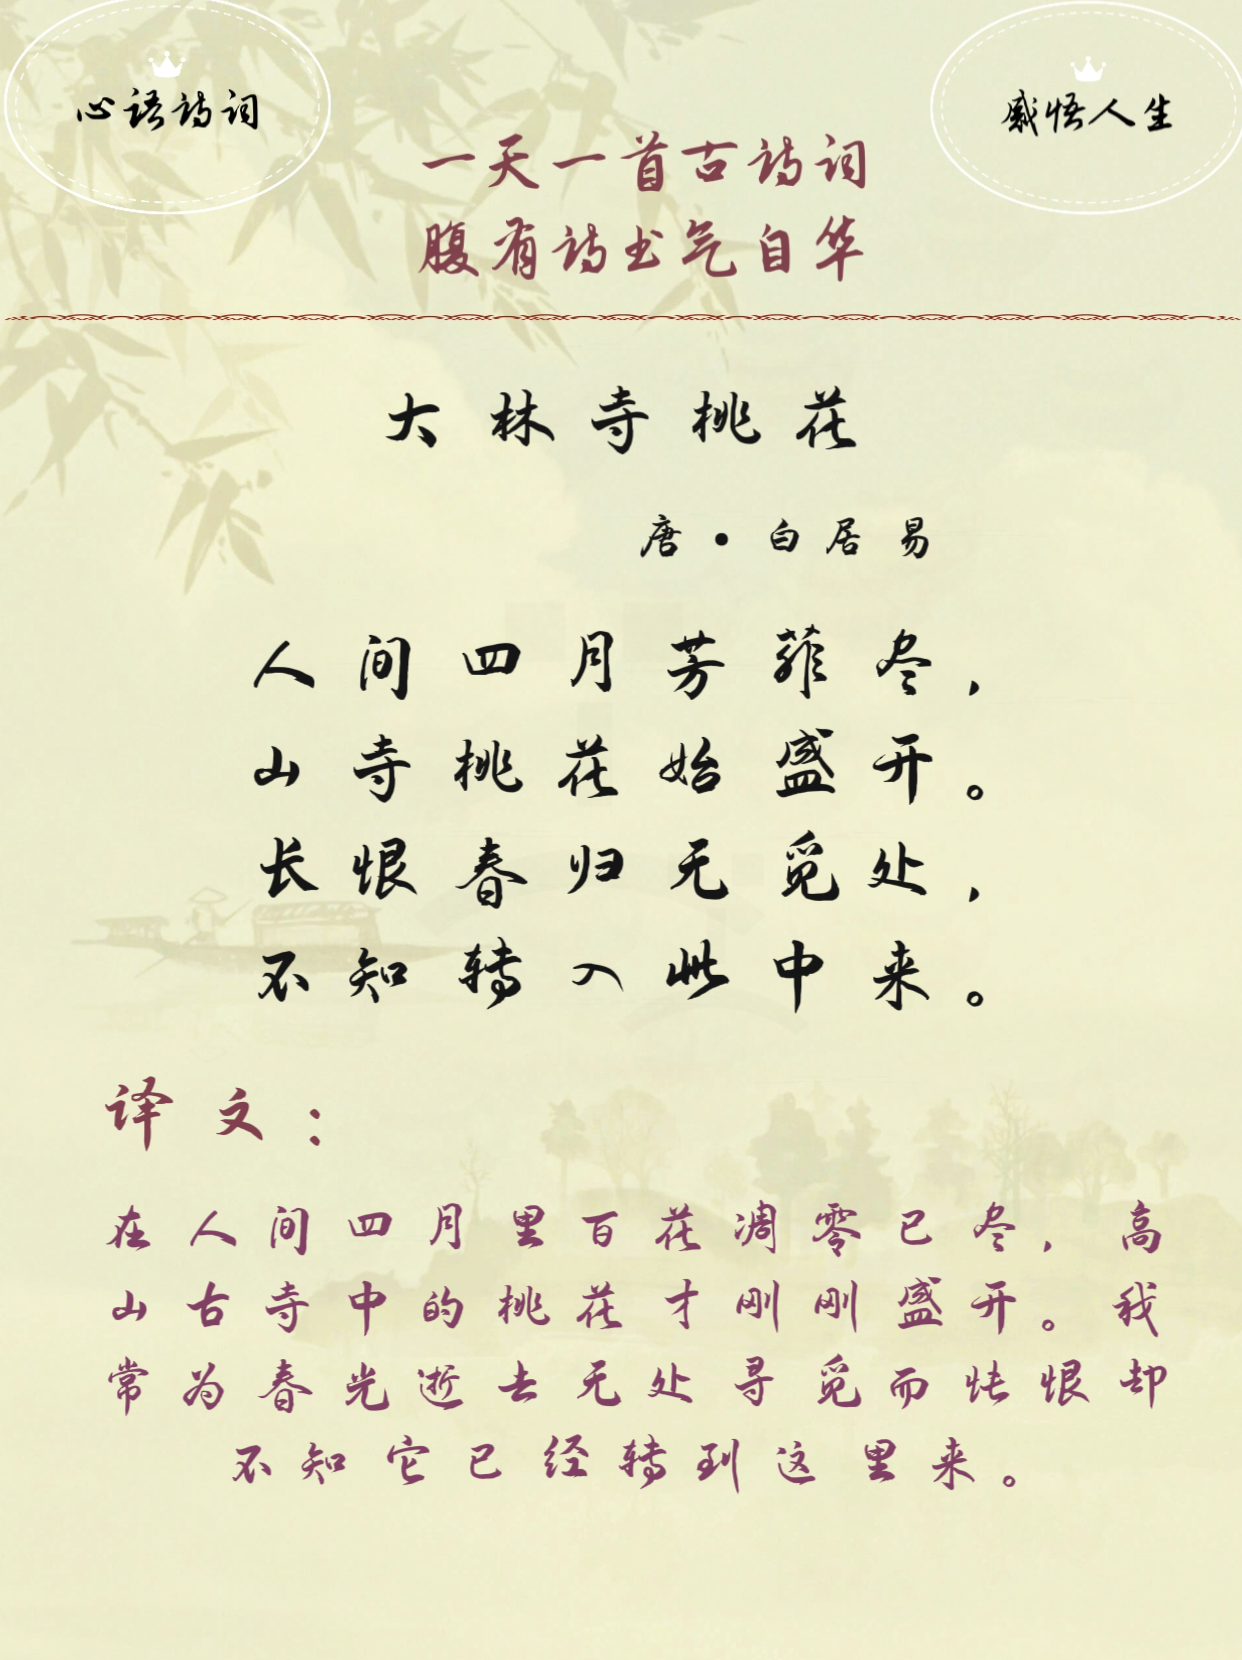 心语诗词
感悟人生
一天一首古诗词
腹有诗书气自华
大林寺桃花
唐·白居易
人间四月芳菲尽，
山寺桃花始盛开。
长恨春归无觅处，
不知转入此中来。
译文：
在人间四月里百花凋零已尽，高
山古寺中的桃花才刚刚盛开。我
常为春光逝去无处寻觅而怅恨却
不知它已经转到这里来。